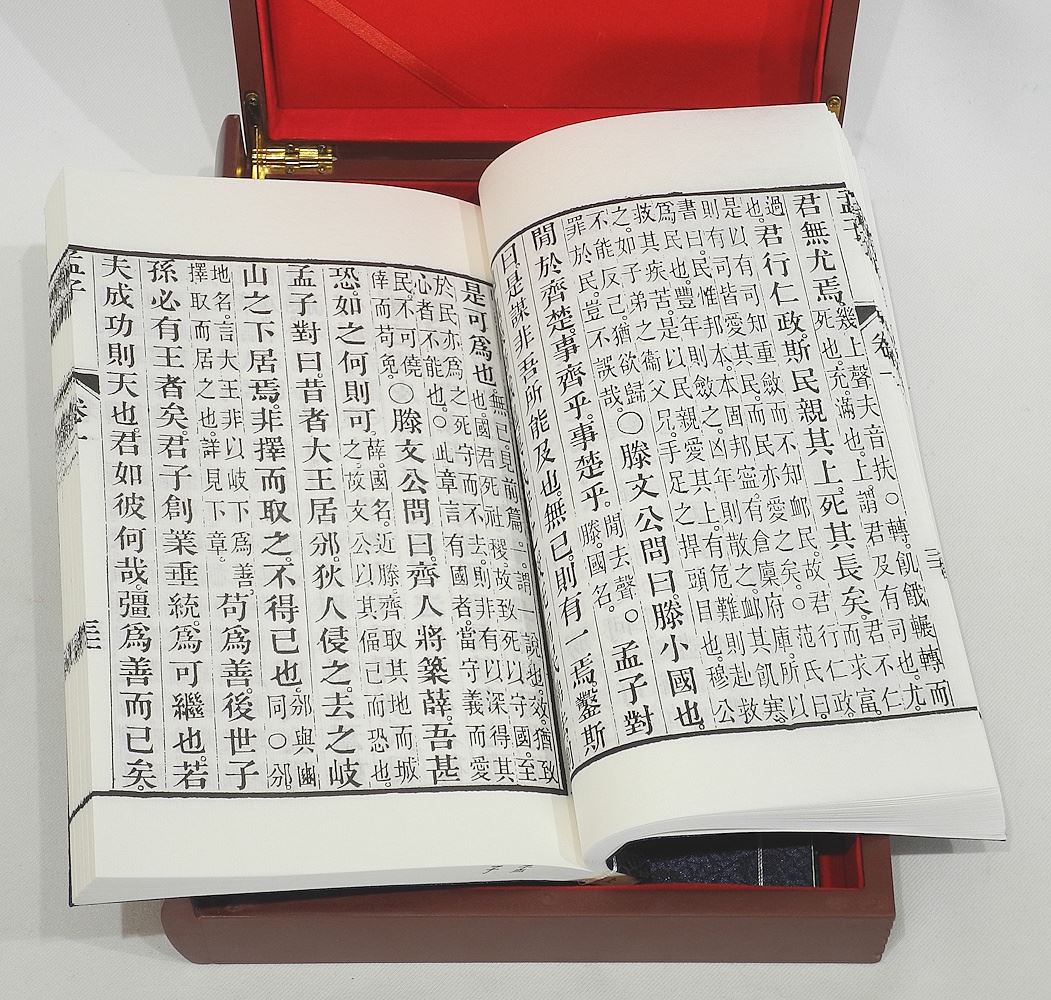 孟子
君無尤焉。幾上聲夫音扶○轉飢餓輾轉而
死也。充滿也。上謂君及有司也。尤
過
也。君行仁政。斯民親其上。死其長矣。君不仁
而求富。
是以有司知重斂而不知䘏民。故君行仁政
則有司皆愛其民。而民亦愛之矣。○范氏曰。
書曰。民惟邦本。本固邦寧。有倉廩府庫。所以
爲民也。豐年則斂之。凶年則散之。䘏其飢寒。
救其疾苦。是以民親愛其上。有危難則赴救
之。如子弟之衞父兄。手足之捍頭目也。穆公
不能反己。猶欲歸
罪於民。豈不誤哉。○滕文公問曰。滕小國也。
閒於齊楚。事齊乎。事楚乎。閒去聲。○
滕國名。孟子對
曰。是謀非吾所能及也。無已。則有一焉。鑿斯
是可爲也。無已見前篇。一謂一說也。效猶致
也。國君死社稷。故致死以守國。至
於民亦爲之死守而不去。則非有以深得其
心者不能也。○此章言有國者。當守義而愛
民。不可僥
倖而苟免。○滕文公問曰。齊人將築薛。吾甚
恐。如之何則可。薛國名。近滕。齊取其地而城
之。故文公以其偪己而恐也
孟子對曰。昔者大王居邠。狄人侵之。去之岐
山之下居焉。非擇而取之。不得已也。邠與豳
同○邠。
地名。言大王非以岐下爲善。
擇取而居之也。詳見下章。苟爲善。後世子
孫必有王者矣。君子創業垂統。爲可繼也。若
夫成功則天也。君如彼何哉。彊爲善而已矣。
孟子